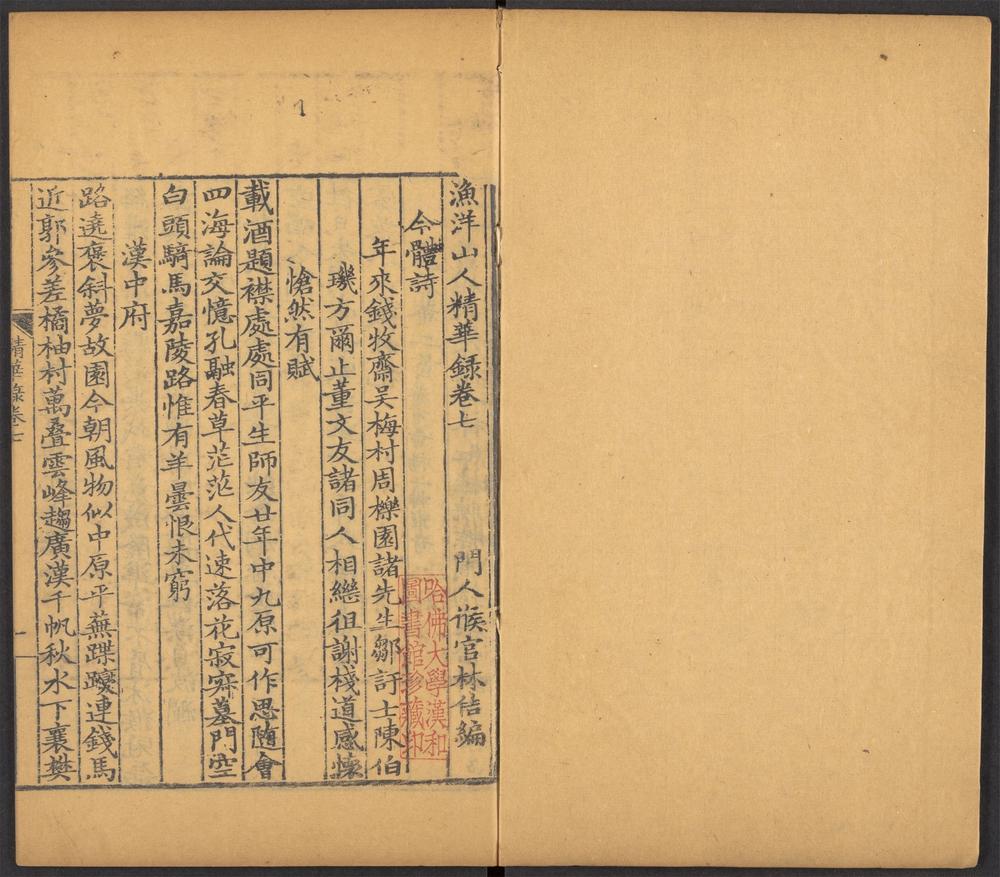 漁洋山人精華録卷七
門人侯官林佶編
今體詩
年來錢牧齋吴梅村周櫟園諸先生鄒訏士陳伯
璣方爾止董文友諸同人相繼徂謝棧道感懷
愴然有賦
載酒題襟處處同平生師友廿年中九原可作思隨會
四海論交憶孔融春草茫茫人代速落花寂寂墓門空
白頭騎馬嘉陵路惟有羊曇恨未窮
漢中府
路遶褒斜夢故園今朝風物似中原平蕪蹀躞連錢馬
近郭參差橘柚村萬疊雲峰趨廣漢千帆秋水下襄樊
精華錄卷七
一
哈佛大學漢和
圖書館珍藏印